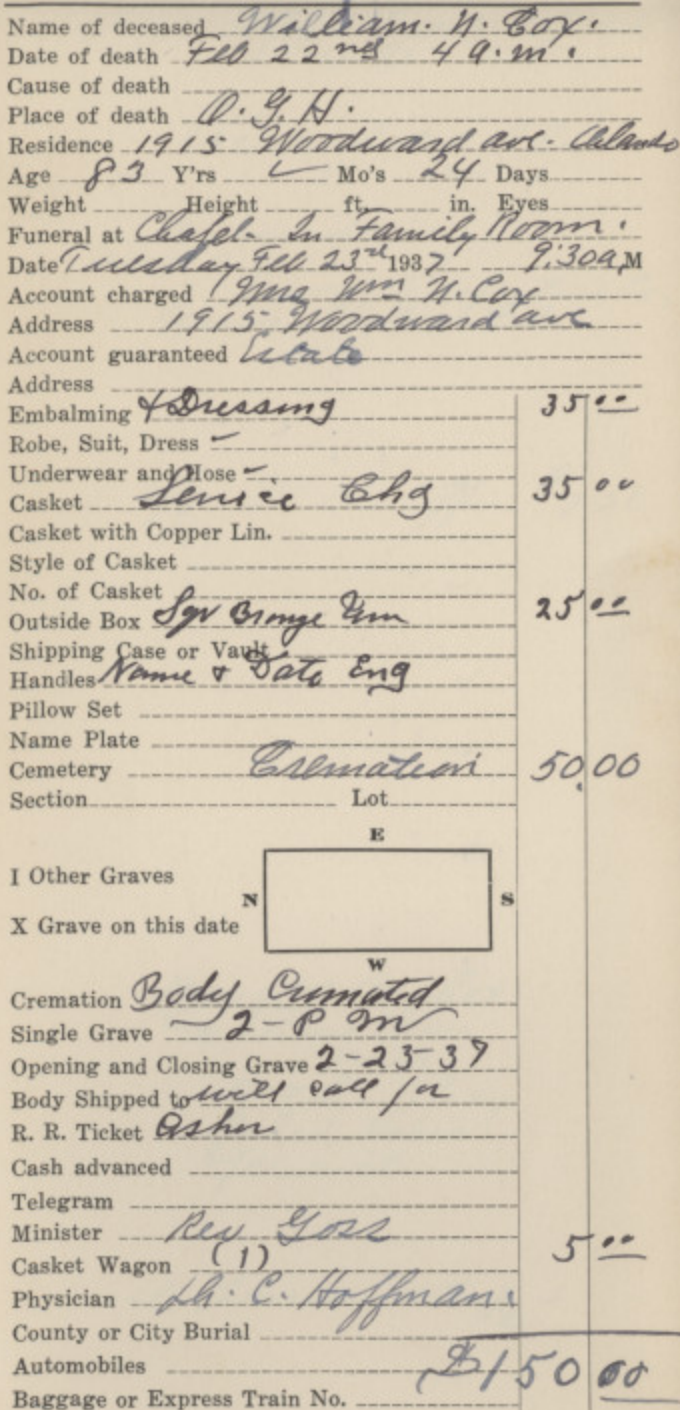 Name of deceased William. N. Cox.
Date of death Feb 22nd 4 a.m.
Cause of death
Place of death O.G.H.
Residence 1915 Woodward ave. Orlando
Age 83 Y'rs ✓ Mo's 24 Days
Weight Height ft. in. Eyes
Funeral at Chapel. In Family Room.
Date Tuesday Feb 23rd 1937 9:30a.M
Account charged Mrs Wm N. Cox
Address 1915 Woodward ave
Account guaranteed Estate
Address
Embalming & Dressing 35 00
Robe, Suit, Dress ✓
Underwear and Hose ✓
Casket Service Chg 35 00
Casket with Copper Lin.
Style of Casket
No. of Casket
Outside Box Sqr Bronze Urn 25 00
Shipping Case or Vault
Handles Name & Date Eng
Pillow Set
Name Plate
Cemetery Cremation 50.00
Section Lot
E
I Other Graves
N S
X Grave on this date
W
Cremation Body Cremated
Single Grave 2-P M
Opening and Closing Grave 2-23-37
Body Shipped to will call for
R. R. Ticket Ashes
Cash advanced
Telegram
Minister Rev Goss 5 00
Casket Wagon (1)
Physician C. Hoffman.
County or City Burial
Automobiles $150 00
Baggage or Express Train No.